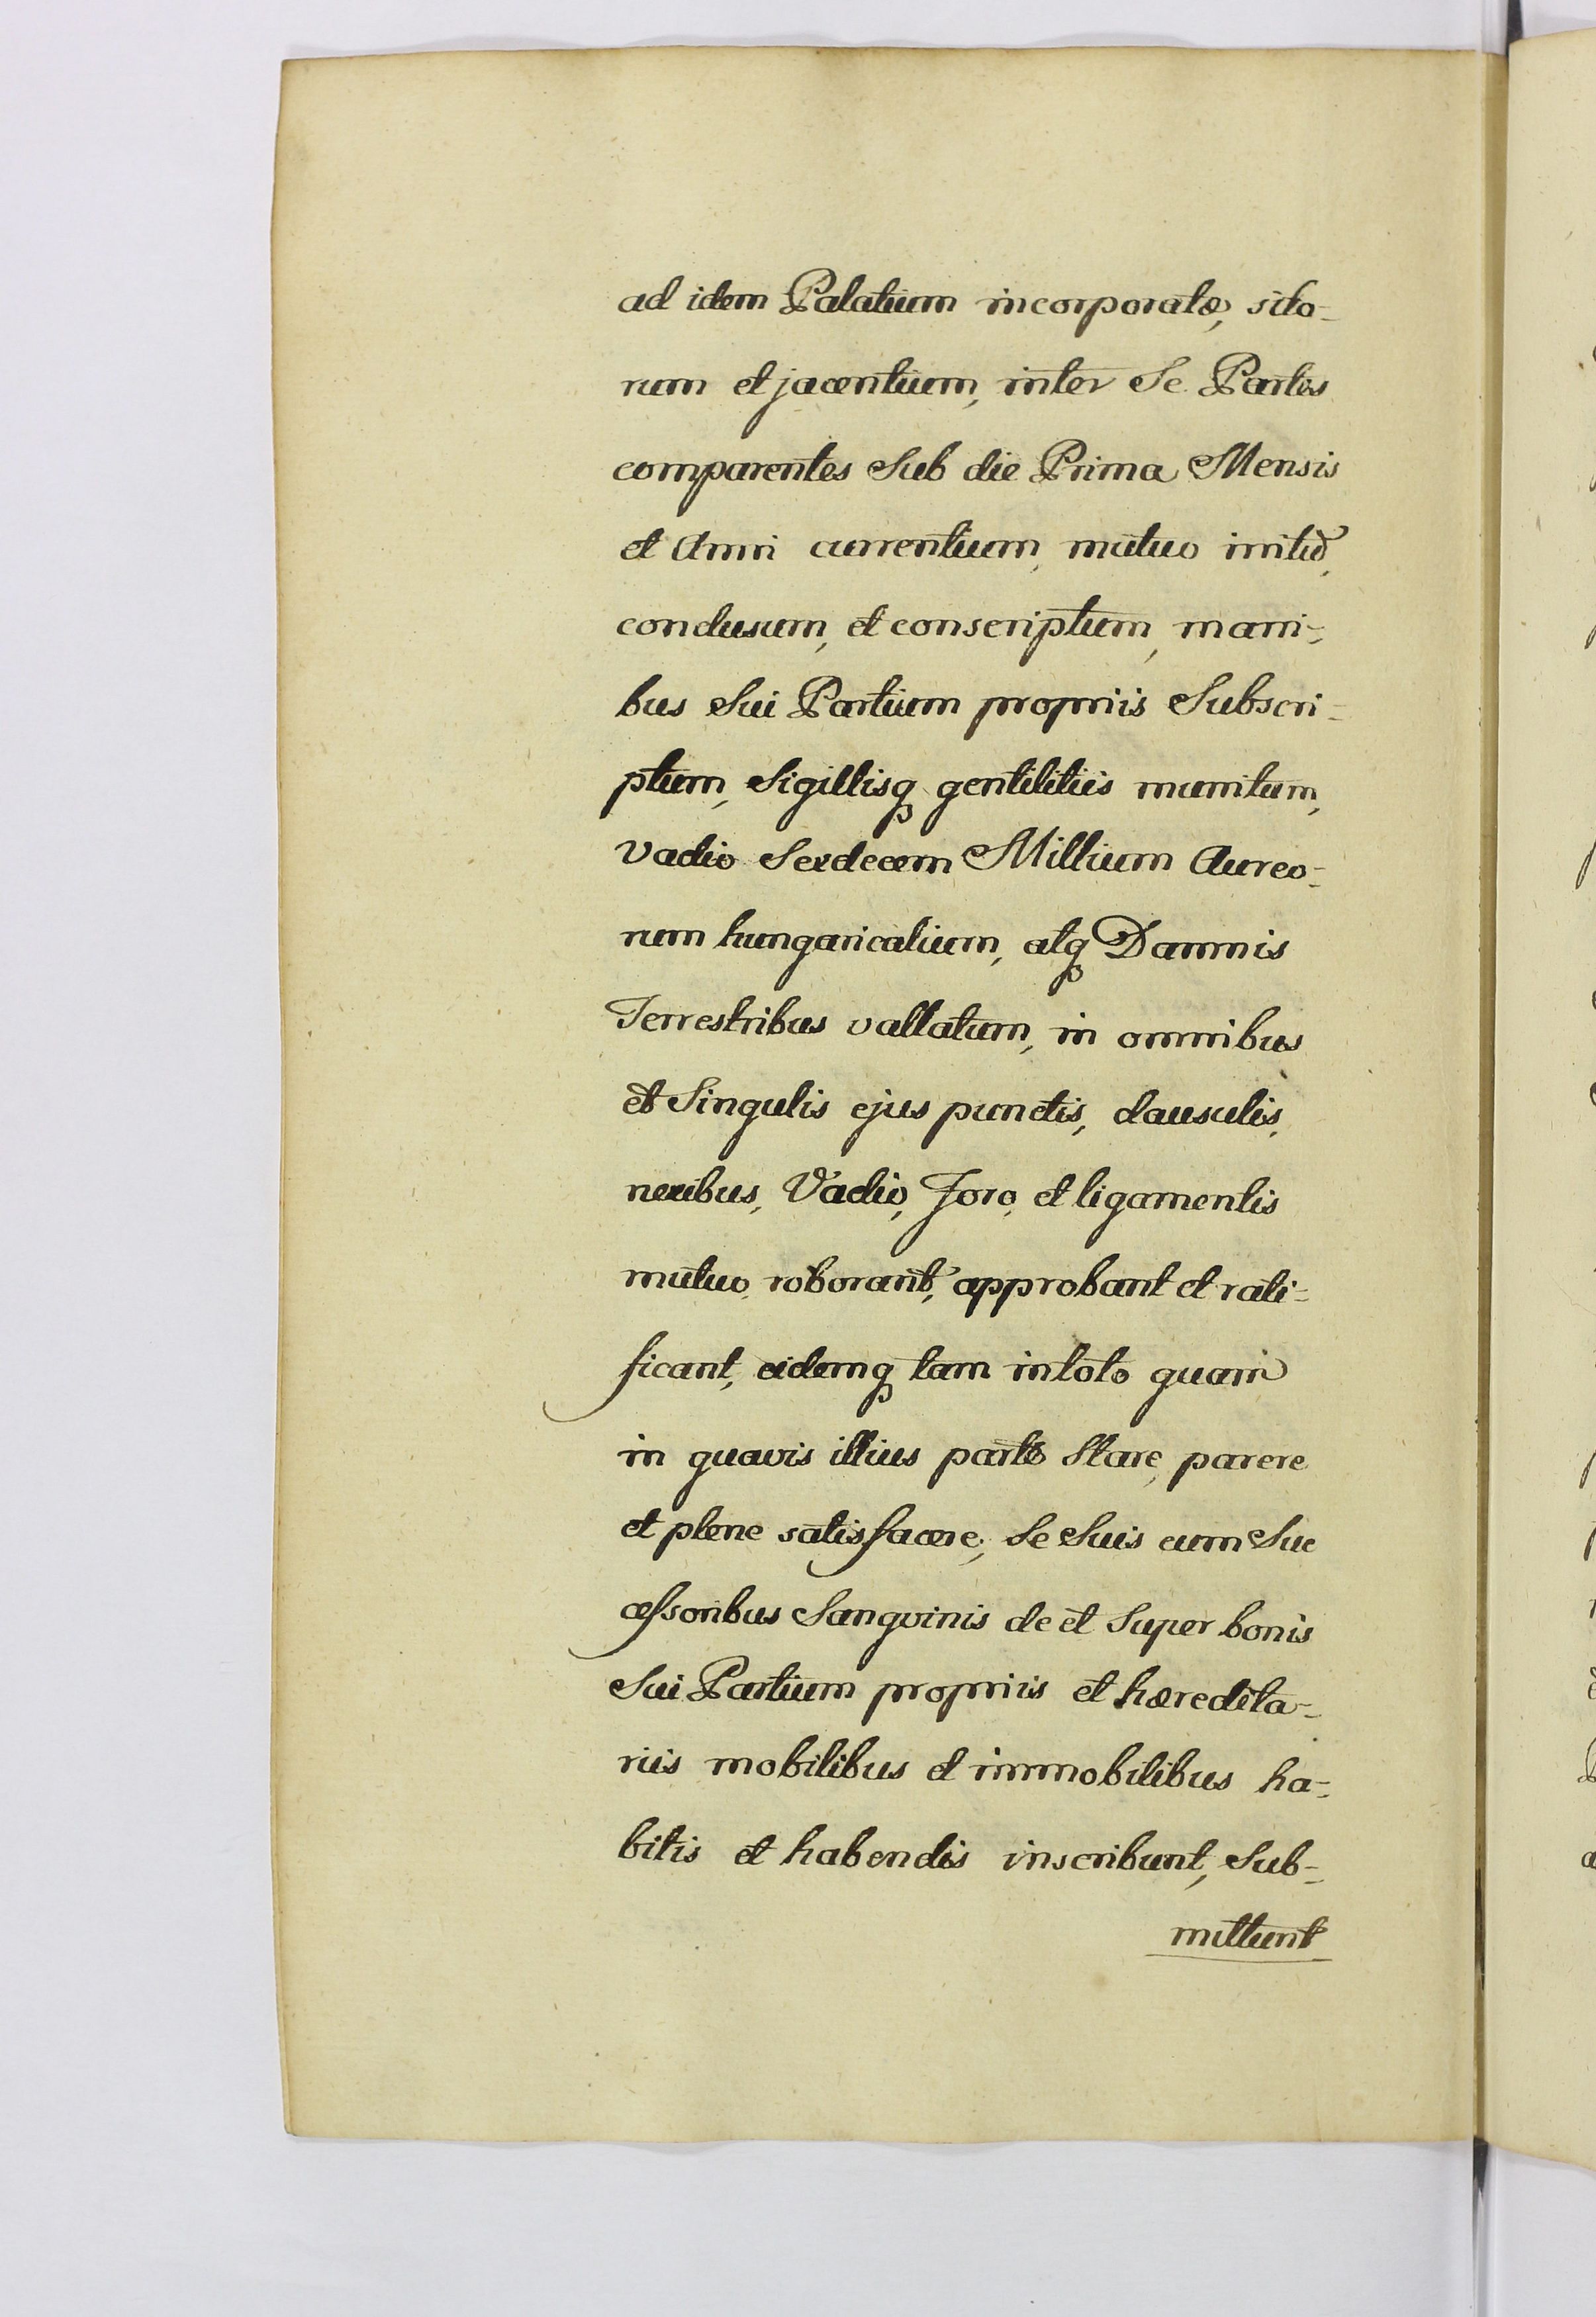 ad idem Palatium incorporatæ, sito-
rum et jacentium, inter Se Partes
comparentes Sub die Prima Mensis
et Anni currentium, mutuo initũ,
conclusum, et conscriptum, mani-
bus Sui Partium propriis Subscri-
ptum, Sigillisq gentilitiis munitum,
vadio Sexdecem Millium Aureo-
rum hungaricalium, atq Damnis
Terrestribus vallatum, in omnibus
et Singulis ejus punctis, clausulis,
nexibus, Vadio, Foro, et ligamentis
mutuo roborant, approbant et rati-
ficant, eidemq tam in toto quam
in quavis illius parte Stare, parere
et plene satisfacere; Se Suis cum Suc
cessoribus Sangvinis de et Super bonis
Sui Partium propriis et hæredita-
riis mobilibus et immobilibus ha-
bitis et habendis inscribunt, Sub-
mittunt